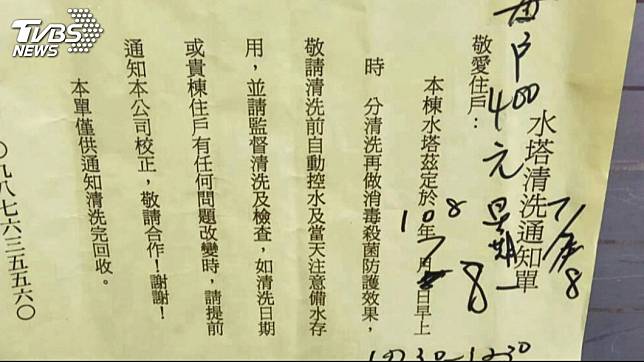 TVBS
NEWS
水塔清洗通知單
每戶400元 星期一
敬愛住戶：
本棟水塔茲定於108年7月8日早上
時 分清洗再做消毒殺菌防護效果，
敬請清洗前自動控水及當天注意備水存
用，並請監督清洗及檢查，如清洗日期
或貴棟住戶有任何問題改變時，請提前
通知本公司校正，敬請合作！謝謝！
本單僅供通知清洗完回收。
〇九八七六三五五六〇